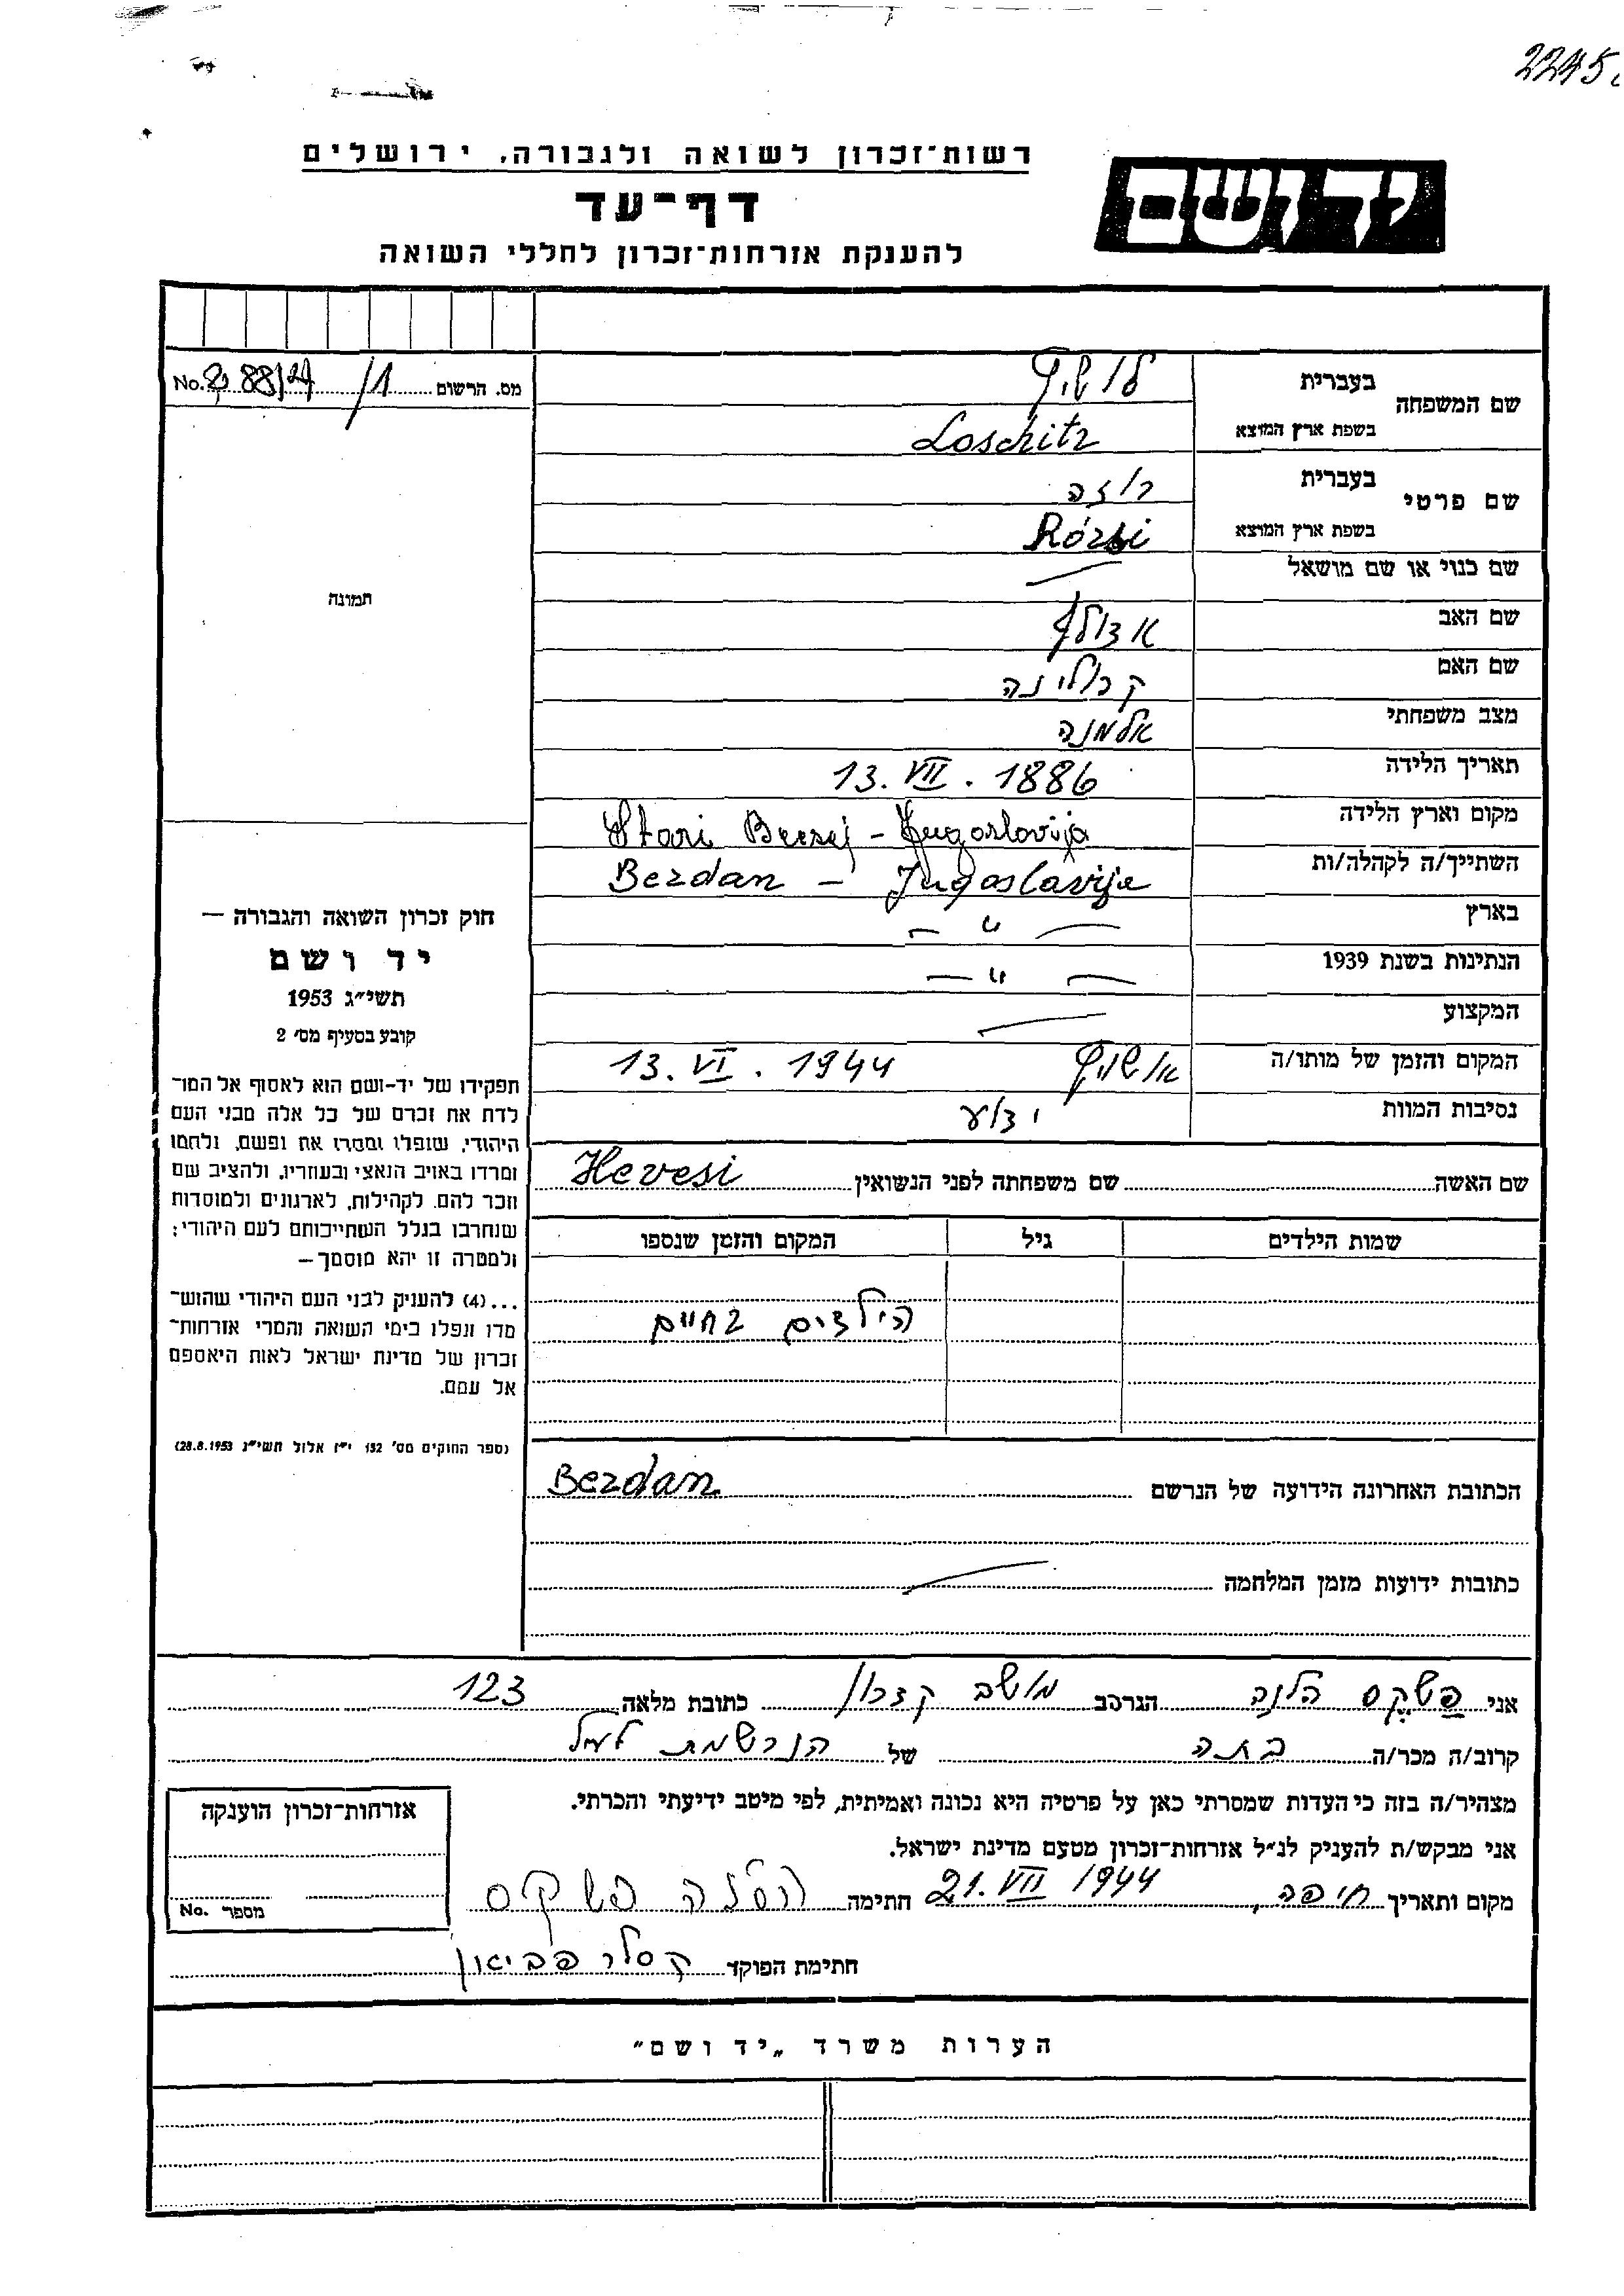 2245
רשות־זכרון לשואה ולגבורה, ירושלים
יד ושם
דף־עד
להענקת אזרחות־זכרון לחללי השואה
מס. הרשום No.
שם המשפחה
בעברית לושיץ
בשפת ארץ המוצא Loschitz
שם פרטי
בעברית רוזה
בשפת ארץ המוצא Rózsi
שם כנוי או שם מושאל
שם האב אדולף
שם האם קרולינה
מצב משפחתי אלמנה
תאריך הלידה 13. VII. 1886
מקום וארץ הלידה Stari Becsej - Jugoslovija
השתייך/ה לקהלה/ות Bezdan - Jugoslavije
בארץ — " —
הנתינות בשנת 1939 — " —
המקצוע
המקום והזמן של מותו/ה אושויץ 13. VI. 1944
נסיבות המוות ידוע
שם האשה שם משפחתה לפני הנשואין Hevesi
שמות הילדים גיל המקום והזמן שנספו
הילדים בחיים
הכתובת האחרונה הידועה של הנרשם Bezdan
כתובות ידועות מזמן המלחמה
תמונה
חוק זכרון השואה והגבורה —
יד ושם
תשי״ג 1953
קובע בסעיף מס׳ 2
תפקידו של יד-ושם הוא לאסוף אל המו־
לדת את זכרם של כל אלה מבני העם
היהודי, שנפלו ומסרו את נפשם, נלחמו
ומרדו באויב הנאצי ובעוזריו, ולהציב שם
וזכר להם, לקהילות, לארגונים ולמוסדות
שנחרבו בגלל השתייכותם לעם היהודי;
ולמטרה זו יהא מוסמך—
...(4) להעניק לבני העם היהודי שהוש־
מדו ונפלו בימי השואה והמרי אזרחות־
זכרון של מדינת ישראל לאות היאספם
אל עמם.
(ספר החוקים מס׳ 132 י״ז אלול תשי״ג 28.8.1953)
אני פשקס הלנה הגר/כב מושב קדרון כתובת מלאה 123
קרוב/ה מכר/ה בתה של הנרשמת לעיל
מצהיר/ה בזה כי העדות שמסרתי כאן על פרטיה היא נכונה ואמיתית, לפי מיטב ידיעתי והכרתי.
אני מבקש/ת להעניק לנ״ל אזרחות־זכרון מטעם מדינת ישראל.
מקום ותאריך חיפה, 21. VII 1944 חתימה הלנה פשקס
חתימת הפוקד קסלר פביאן
אזרחות־זכרון הוענקה
מספר No.
הערות משרד „יד ושם״